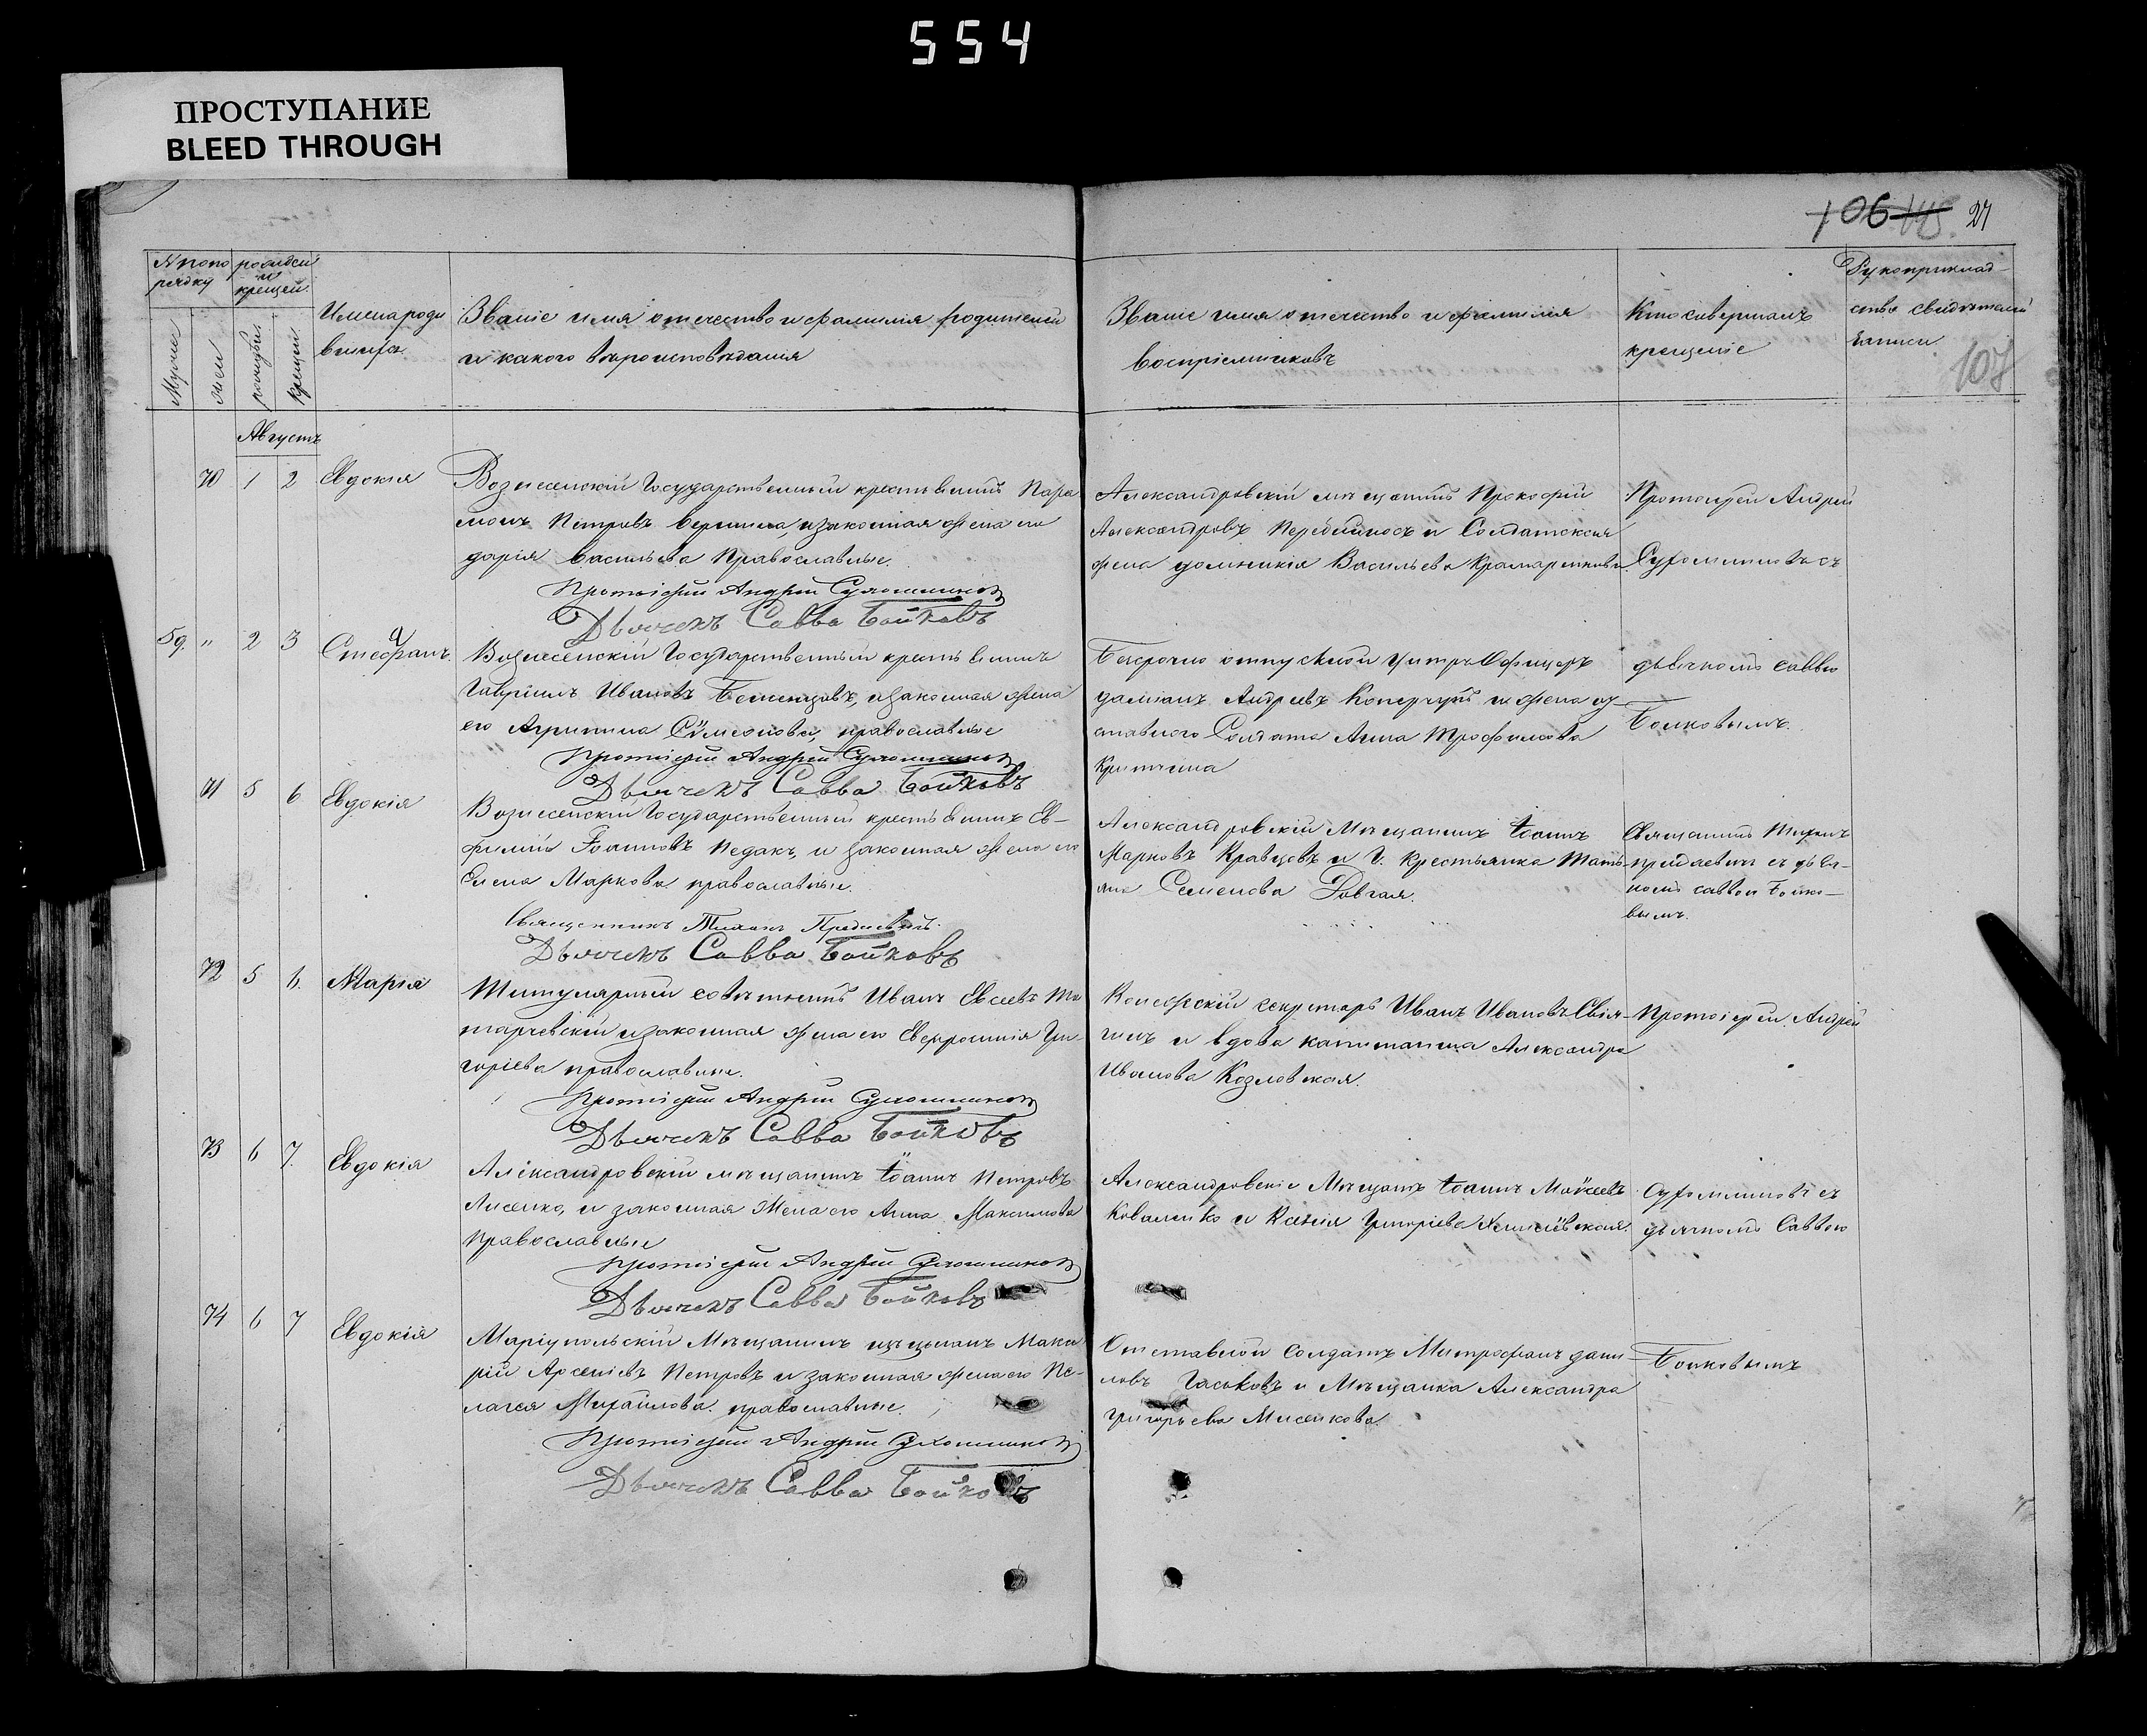 554
ПРОСТУПАНИЕ
BLEED THROUGH
106 27
107
N по по
рядку
крещен.
Имена роди
вшихся
Званіе имя отчество и фамилія родителей
и какого вѣроисповѣданія
Званіе имя отчество и фамилія
воспріемниковъ
Кто совершалъ
крещеніе
Рукоприклад-
ство свидѣтелей
записи
Августъ
70 1 2 Евдокія
Вознесенскій Государственный крестьянинъ Пара
монъ Петровъ законная жена его
дарія Васильева Православные.
Протоіерей Андрей
Дьячекъ Савва Бойковъ
Александровскій мѣщанинъ Прокофій
Александровъ и Солдатская
жена домникія Васильева
Протоіерей Андрей
59. " 2 3 Стефанъ.
Вознесенскій Государственный крестьянинъ
Гавріилъ Ивановъ законная жена
его Агрипина Сѵмеонова, православные
Протоіерей Андрей
Дьячекъ Савва Бойковъ
Безсрочно отпускной Унтеръ Офицеръ
даміанъ Андреевъ и жена от
ставного Солдата Анна Трофимова
дьячкомъ Саввою
Бойковымъ.
71 5 6 Евдокія
Вознесенскій Государственный крестьянинъ Ев-
фимій Іоанновъ Педакъ, и законная жена его
Елена Маркова православные.
Священникъ Тихонъ
Дьячекъ Савва Бойковъ
Александровскій Мѣщанинъ Іоаннъ
Марковъ Кравцовъ и Г. крестьянка Тать-
яна Семенова Довгая.
Священникъ Тихонъ
съ дья-
комъ Саввою Бойко-
вымъ.
72 5 6. Марія
Титулярный совѣтникъ Иванъ Евсеевъ Та
тарчевскій и законная жена его Евфросинія Гри-
горіева православные.
Протоіерей Андрей
Дьячекъ Савва Бойковъ
секретарь Иванъ Ивановъ
и вдова капитанша Александра
Иванова Козловская.
Протоіерей Андрей
73 6 7. Евдокія
Александровскій мѣщанинъ Іоаннъ Петровъ
Лисенко, и законная Жена его Анна Максимова
православные
Протоіерей Андрей
Дьячекъ Савва Бойковъ
Александровскіе Мѣщане Іоаннъ Моисеевъ
Коваленко и Ксенія Григоріева
съ
дьячкомъ Саввою
74 6 7 Евдокія
Маріупольскій Мѣщанинъ Мака
рій Арсеніевъ Петровъ и законная жена его Пе-
лагея Михайлова. православные.
Протоіерей Андрей
Дьячекъ Савва Бойковъ
Отставной солдатъ Митрофанъ дани-
ловъ Гаськовъ и Мѣщанка Александра
Григорьева
Бойковымъ